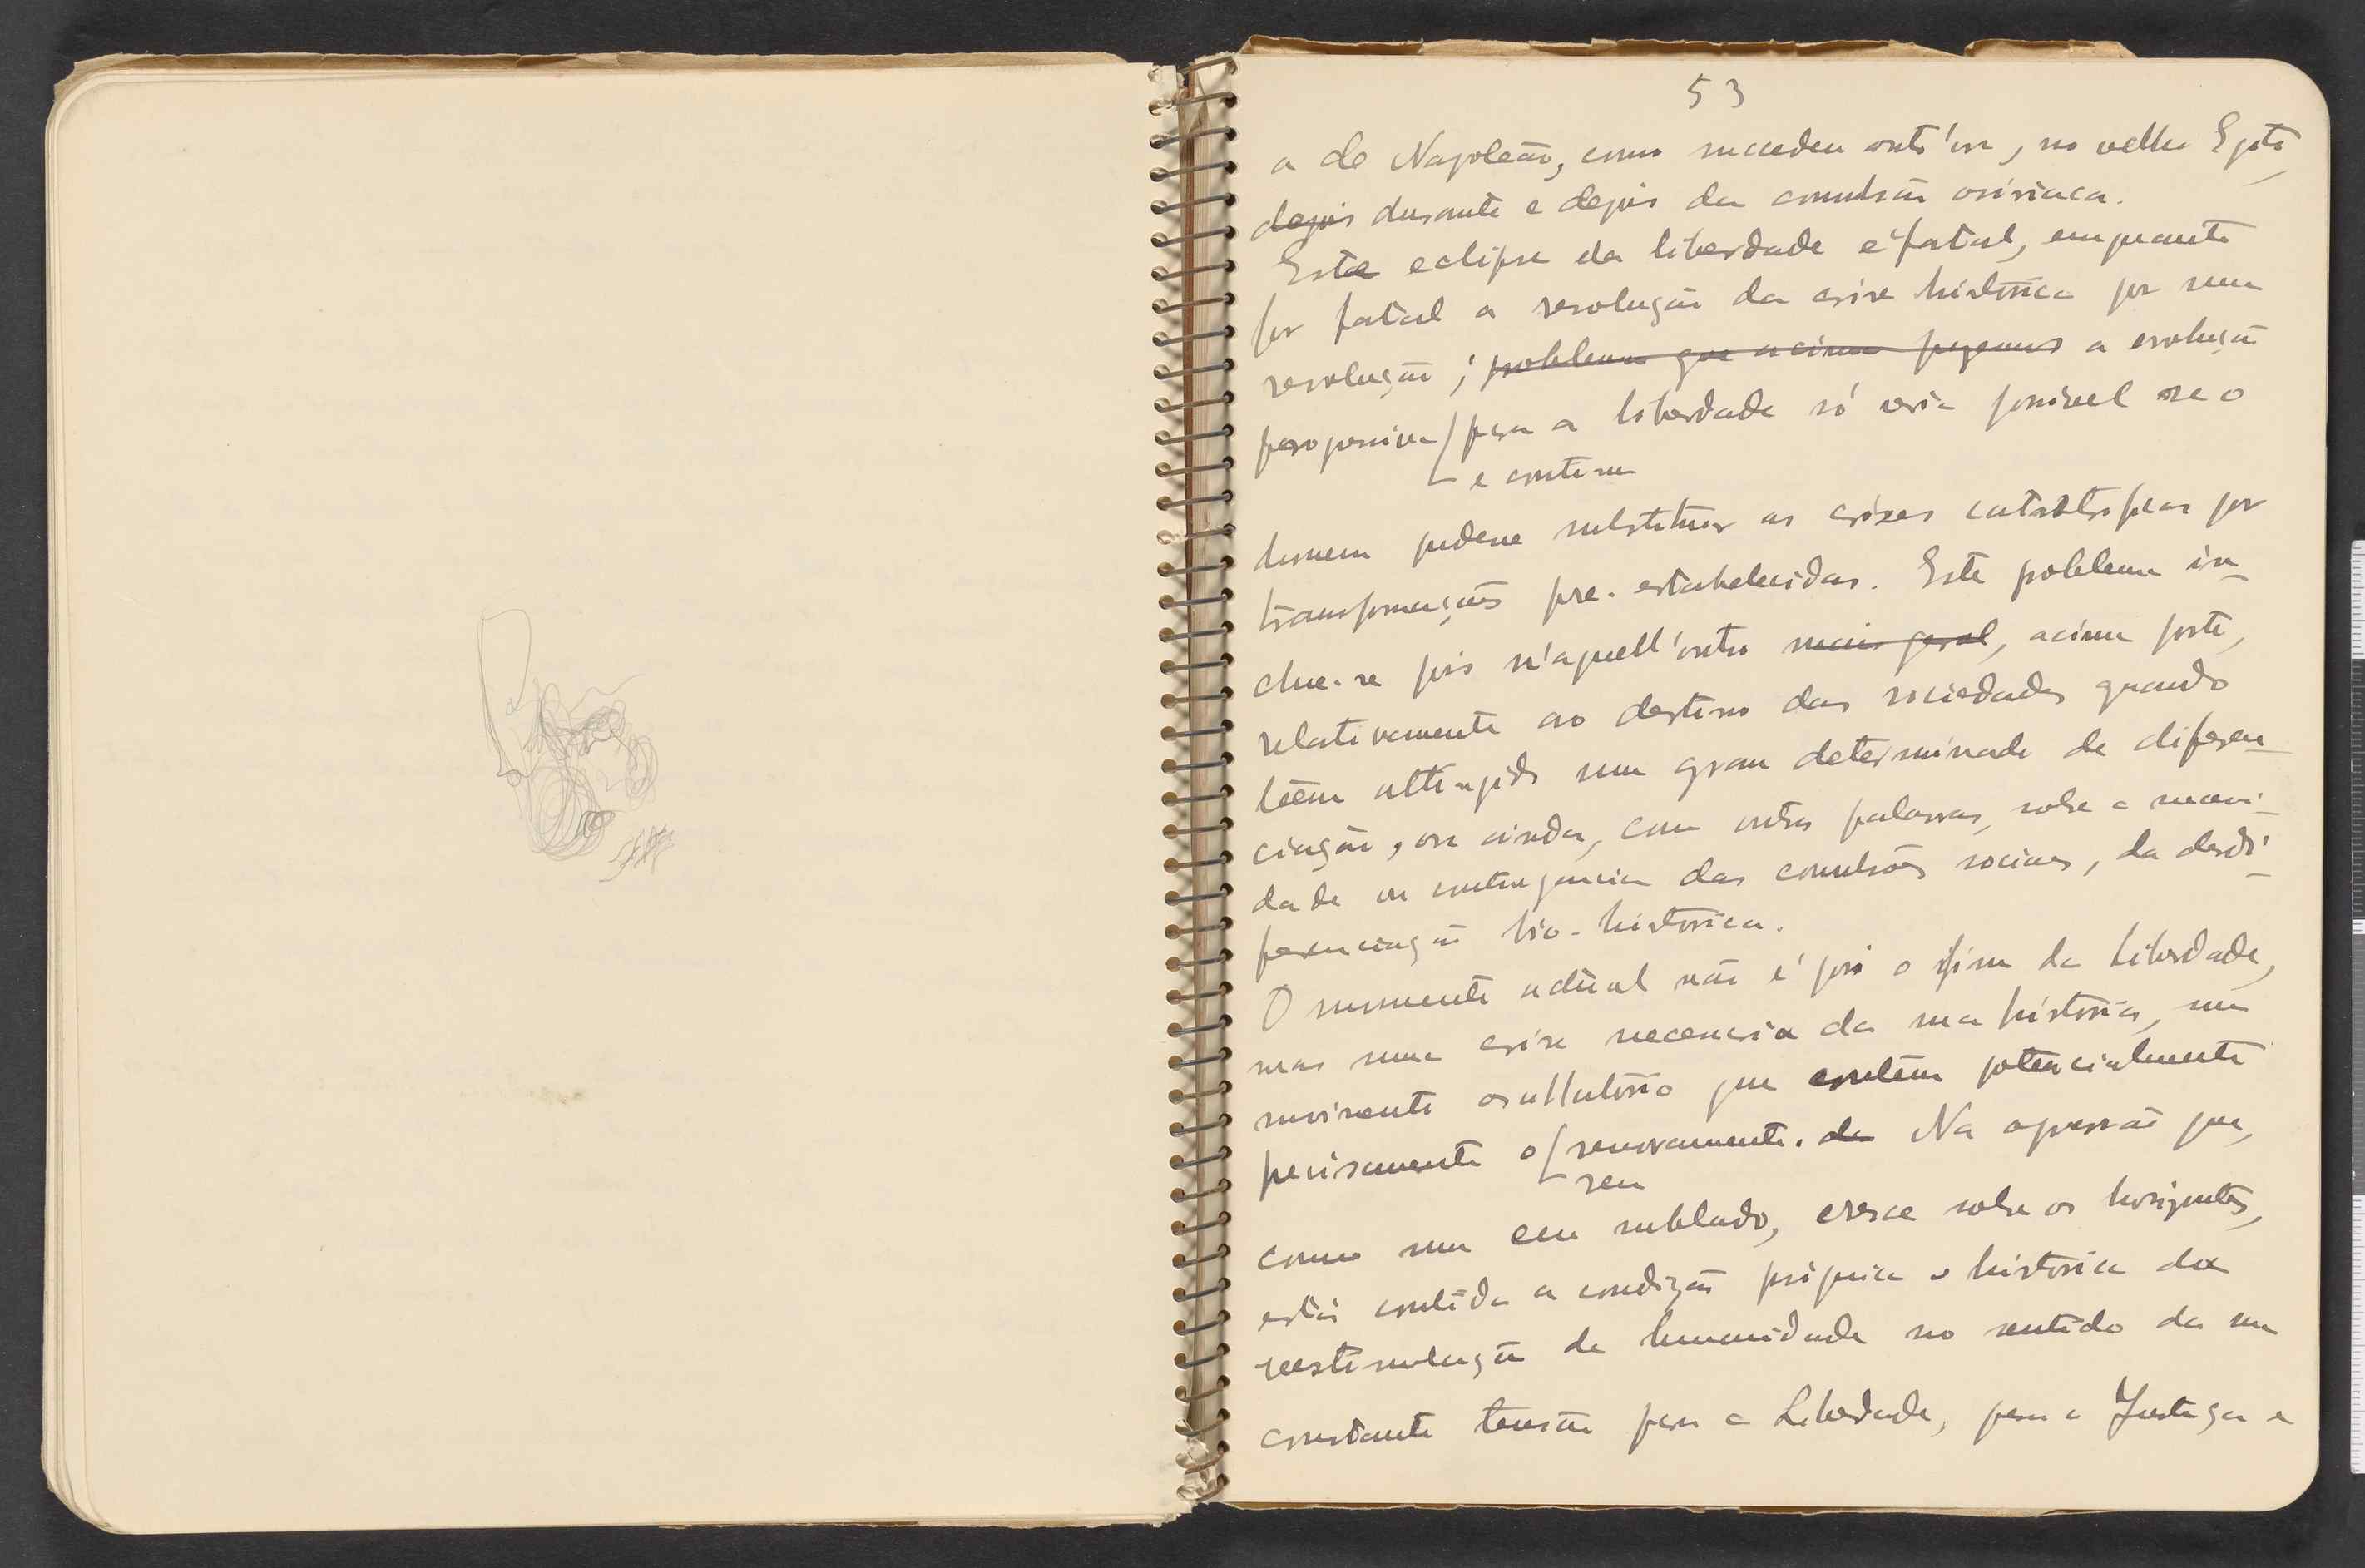 53
a de Napoleão, como succedeu outr'ora, no velho Egito,
depois durante e depois da convulsão osiriaca.
Este eclipse da liberdade é fatal, emquanto
for fatal a resolução da crise histórica por uma
revolução; problema que acima pozemos a evolução
progressiva para a liberdade só seria possivel se o
e contínua
homem pudesse substituir as crises catastroficas por
transformações pre-estabelecidas. Este problema in-
clue-se pois n'aquell'outro mais geral, acima posto,
relativamente ao destino das sociedades quando
teem attingido um grau determinado de diferen-
ciação, ou ainda, com outras palavras, sobre a
dade ou contingencia das convulsões sociaes, da desdi-
ferenciação bio-histórica.
O momento actual não é pois o fim da Liberdade,
mas uma crise necessaria da sua história, um
movimento oscillatório que contêm potencialmente
precisamente o renovamento. da Na opressão que,
seu
como um ceu nublado, cresce sobre os horizontes,
está contida a condição psiquica e historica da
reestimulação da humanidade no sentido da sua
constante tensão para a Liberdade, para a Justiça e